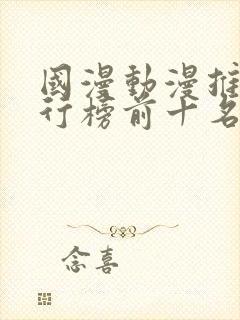 國漫動漫推
行榜前十名
念喜